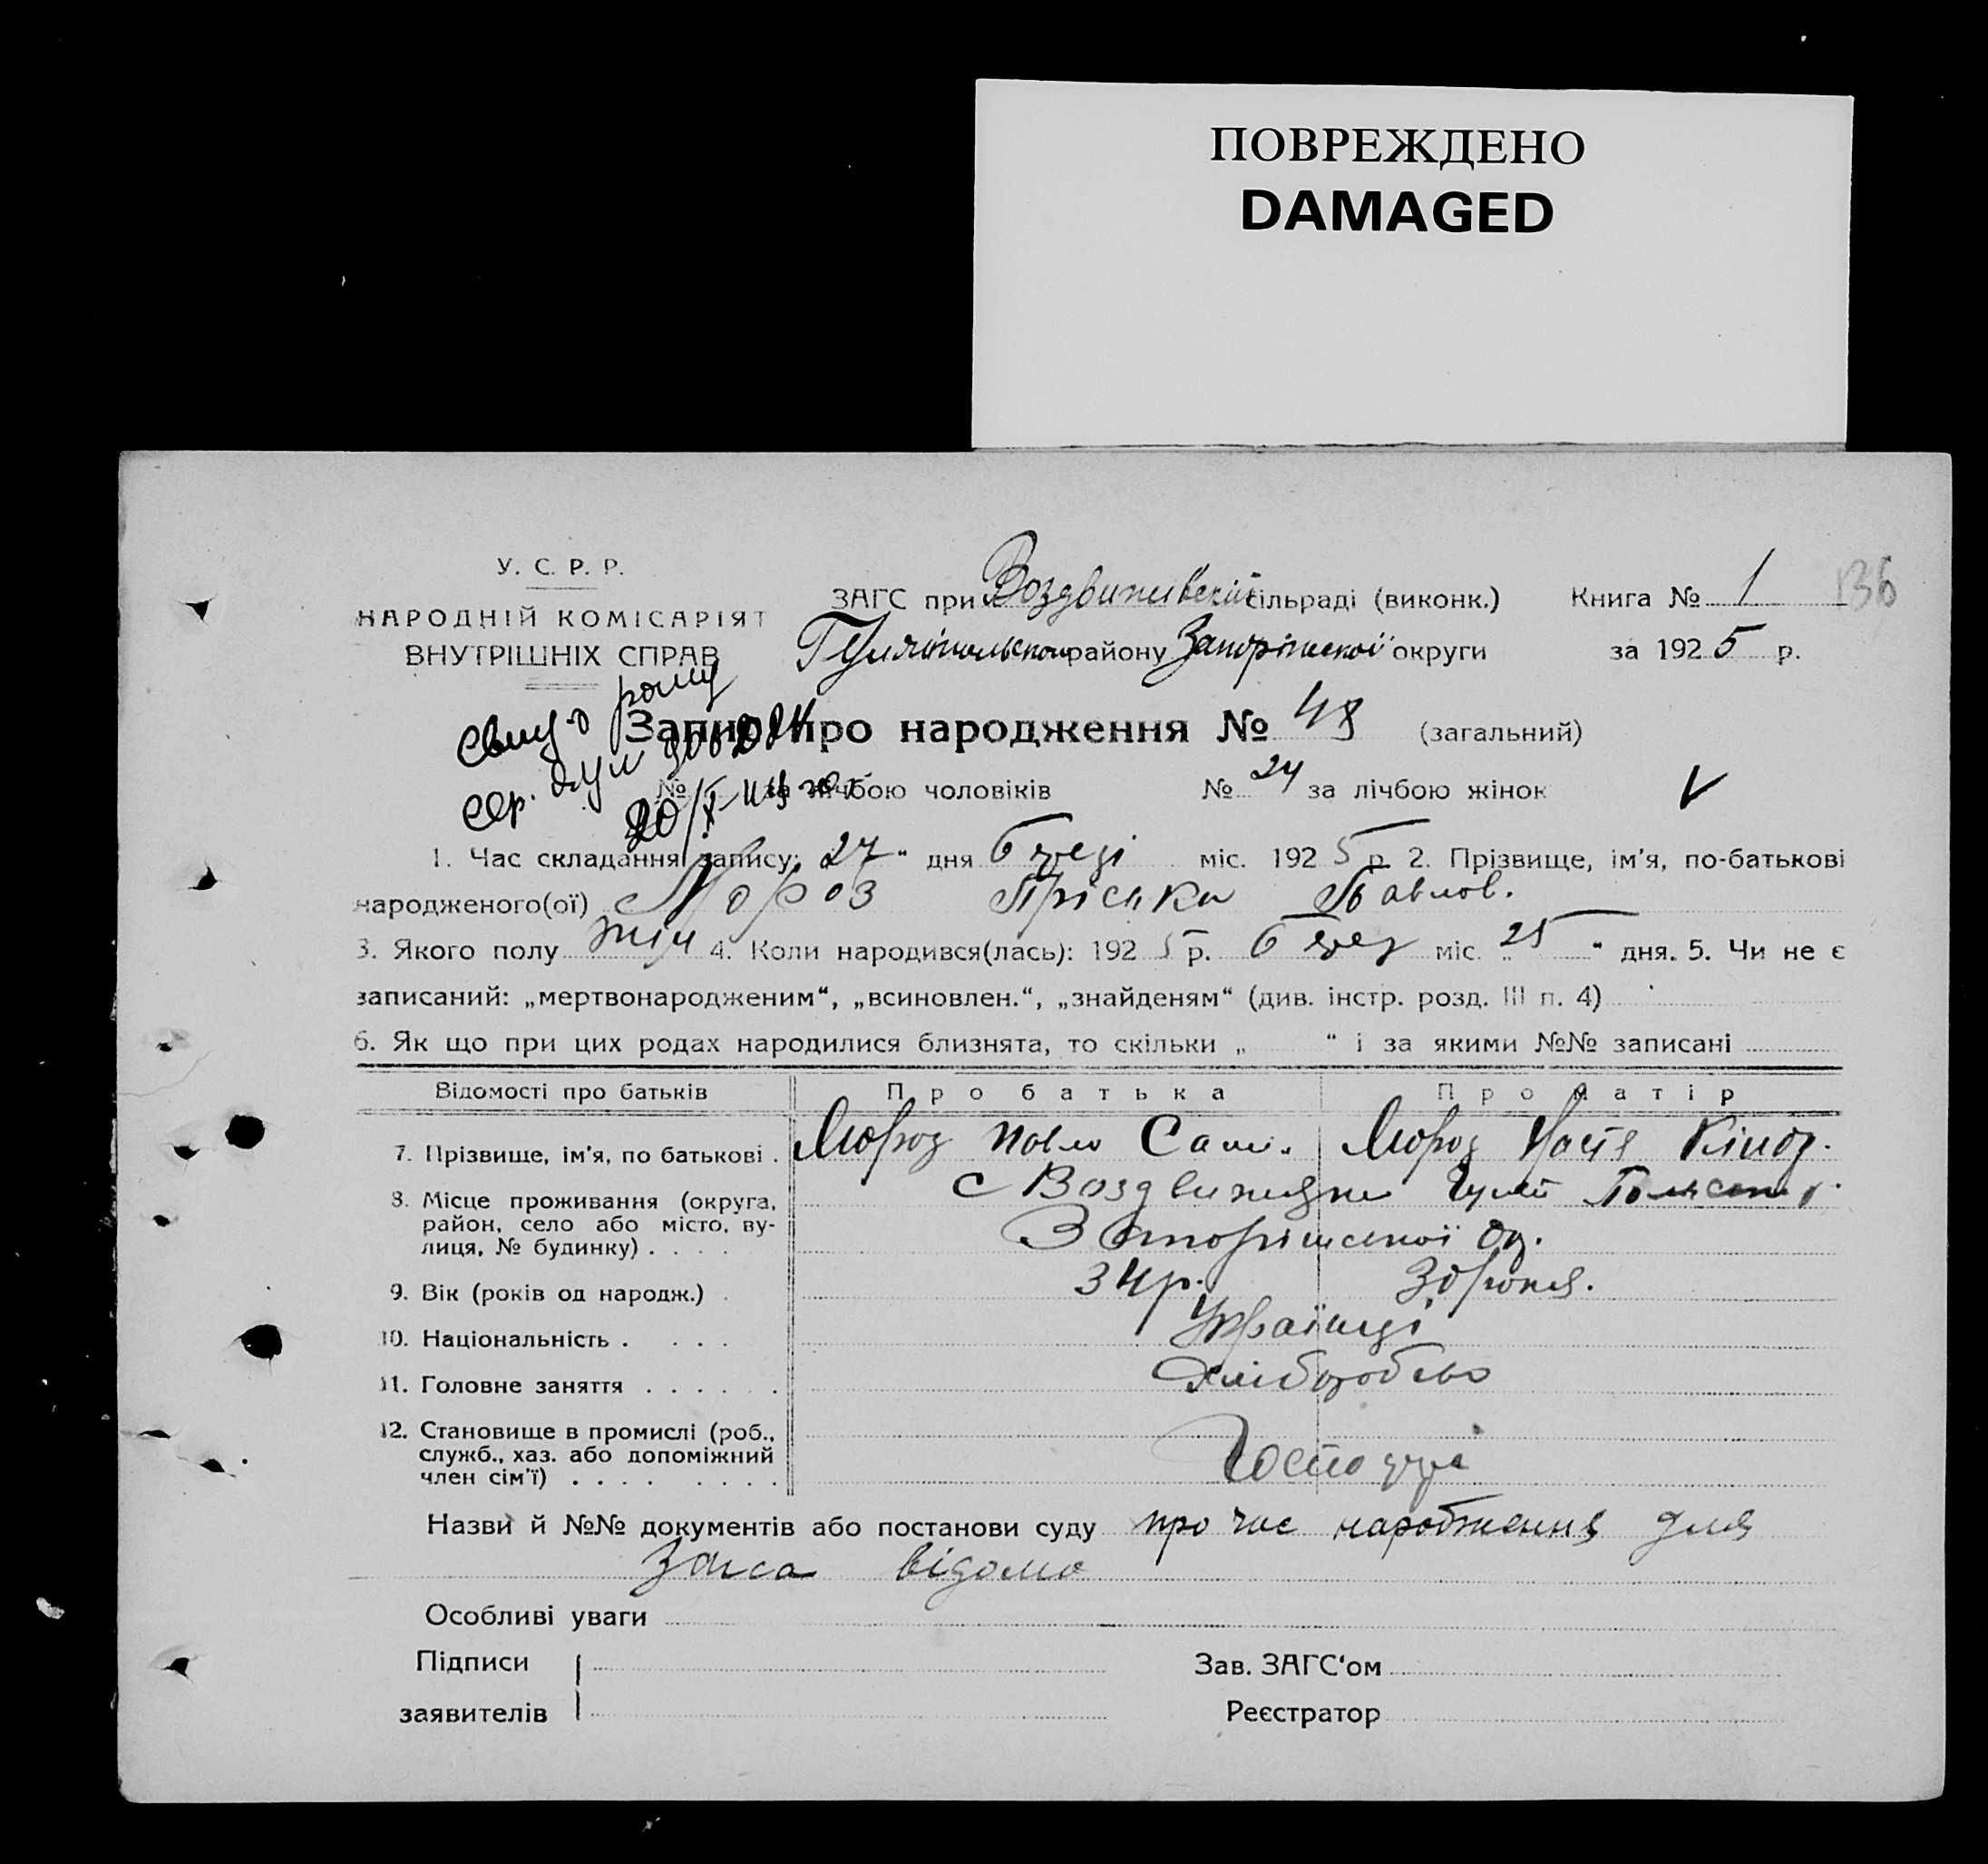 ПОВРЕЖДЕНО
DAMAGED
У. С. Р. Р.
НАРОДНІЙ КОМІСАРІЯТ
ВНУТРІШНІХ СПРАВ
ЗАГС при Воздвижівській сільраді (виконк.)
Книга № 1
136
Гуляйпольского району Запоріжської округи
за 1925 р.
Запис про народження № 48 (загальний)
№ за лічбою чоловіків № 24 за лічбою жінок V
1. Час складання запису: 27 " дня міс. 1925 р. 2. Прізвище, ім'я, по-батькові
народженого(ої) Мороз Пріська Павлов.
3. Якого полу жін 4. Коли народився(лась): 1925 р. міс. „ 25 " дня. 5. Чи не є
записаний: „мертвонародженим", „всиновлен.", „знайденям" (див. інстр. розд. III п. 4)
6. Як що при цих родах народилися близнята, то скільки „ " і за якими №№ записані
Відомості про батьків Про батька Про матір
7. Прізвище, ім'я, по батькові . Мороз Павло Сам. Мороз Настя Кіндр.
8. Місце проживання (округа, с Воздвижвки Гуляй
район, село або місто, ву-
лиця, № будинку) . . . . Запоріжської Ок.
9. Вік (років од народж.) . 34 р. 30 років.
10. Національність . . . . Українці
11. Головне заняття . . . . . . Хліборобство
12. Становище в промислі (роб.,
служб., хаз. або допоміжний Господарі
член сім'ї) . . . . . . . .
Назви й №№ документів або постанови суду про час народження для
Загса відомо
Особливі уваги
Підписи
заявителів
Зав. ЗАГС'ом
Реєстратор